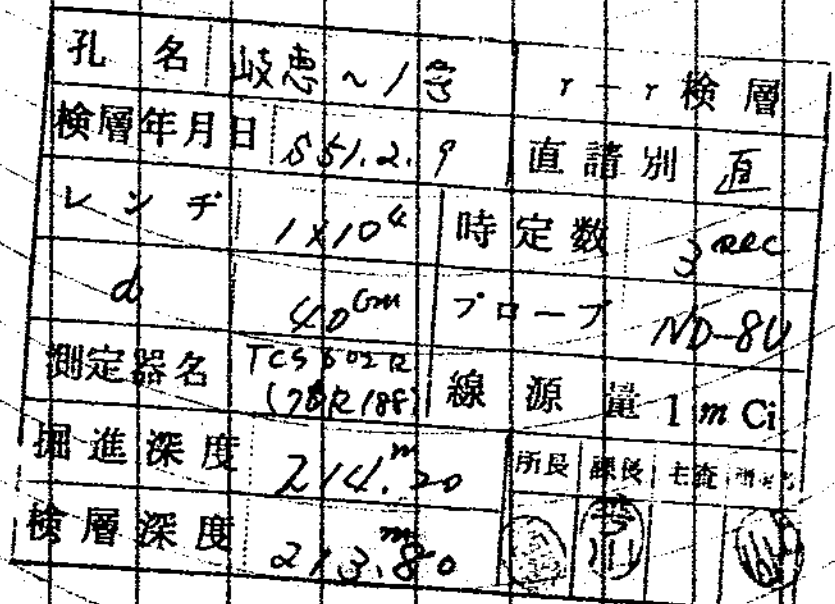 孔名 岐恵~1号 r-r検層
検層年月日 S51.2.9 直請別 直
レンヂ 1×10⁴ 時定数 3 sec
d 40cm プローブ ND-8U
測定器名 線源量 1mCi
掘進深度 214.20m 所長 課長 主査
検層深度 213.80m